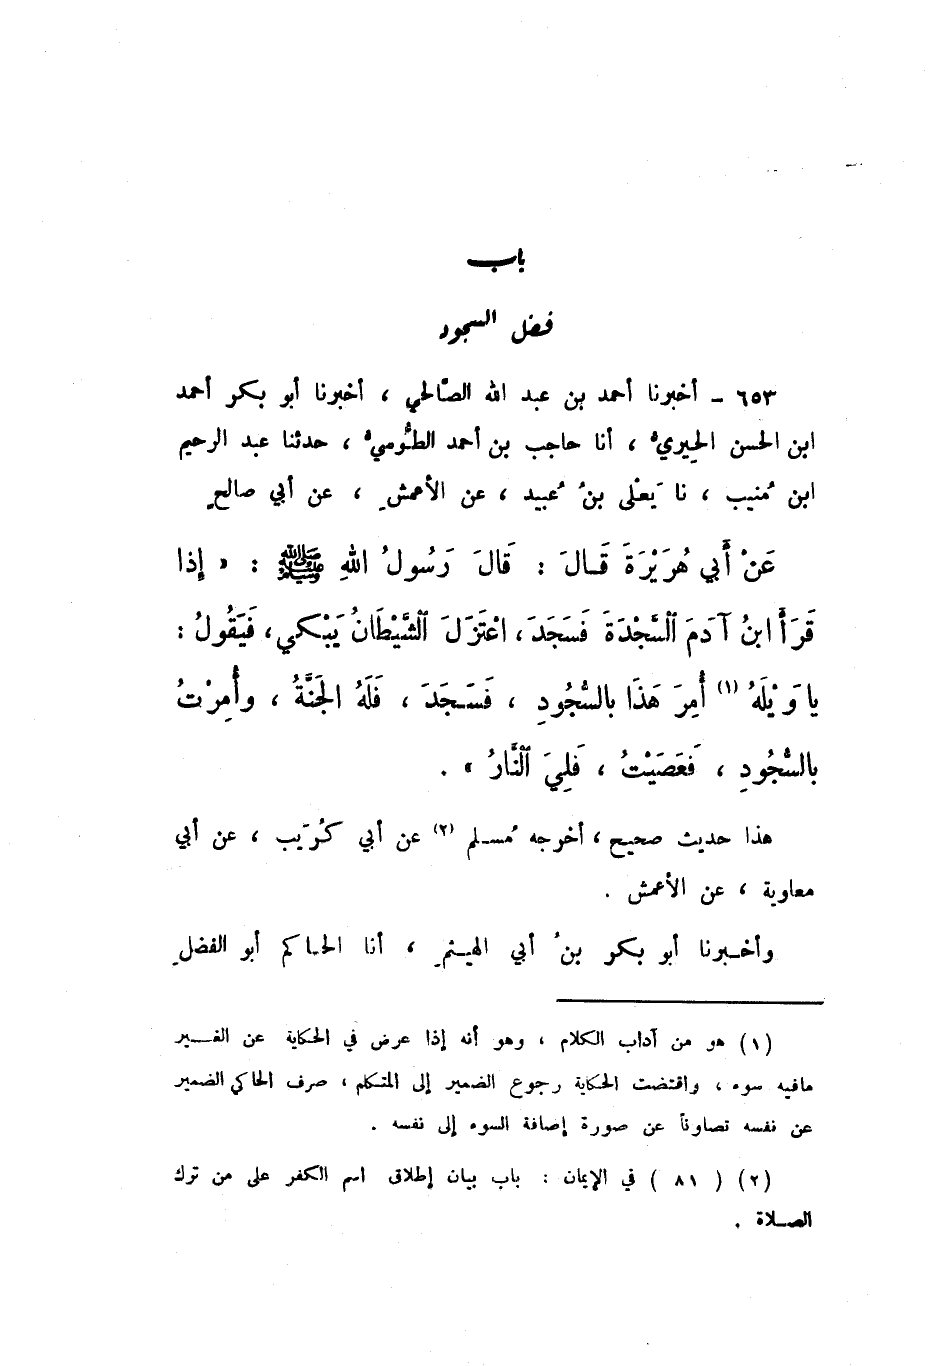 باب
فضل السجود
٦٥٣ - أخبرنا أحمد بن عبد الله الصّالحي ، أخبرنا أبو بكر أحمد
ابن الحسن الحِيريُّ ، أنا حاجب بن أحمد الطُّوسيُّ ، حدثنا عبد الرحيم
ابن مُنيب ، نا يَعْلى بنُ عُبيد ، عن الأعمشِ ، عن أبي صالحٍ
عَنْ أَبي هُرَيْرَةَ قَالَ : قَالَ رَسُولُ اللهِ ﷺ : « إِذا
قَرَأَ ابنُ آدَمَ السَّجْدَةَ فَسَجَدَ، اعْتَزَلَ الشَّيْطَانُ يَبْكي، فَيَقُولُ :
يا وَيْلَهُ (١) أُمِرَ هَذَا بالسُّجُودِ ، فَسَجَدَ ، فَلَهُ الجَنَّةُ ، وأُمِرْتُ
بالسُّجُودِ ، فَعَصَيْتُ ، فَلِيَ النَّارُ » .
هذا حديث صحيح ، أخرجه مُسلم (٢) عن أبي كُرَيب ، عن أبي
معاوية ، عن الأعمش .
وأخبرنا أبو بكر بنُ أبي الهيثمِ ، أنا الحاكم أبو الفضلِ
(١) هو من آداب الكلام ، وهو أنه إذا عرض في الحكاية عن الغير
مافيه سوء ، واقتضت الحكاية رجوع الضمير إلى المتكلم ، صرف الحاكي الضمير
عن نفسه تصاوناً عن صورة إضافة السوء إلى نفسه .
(٢) ( ٨١ ) في الإيمان : باب بيان إطلاق اسم الكفر على من ترك
الصلاة .